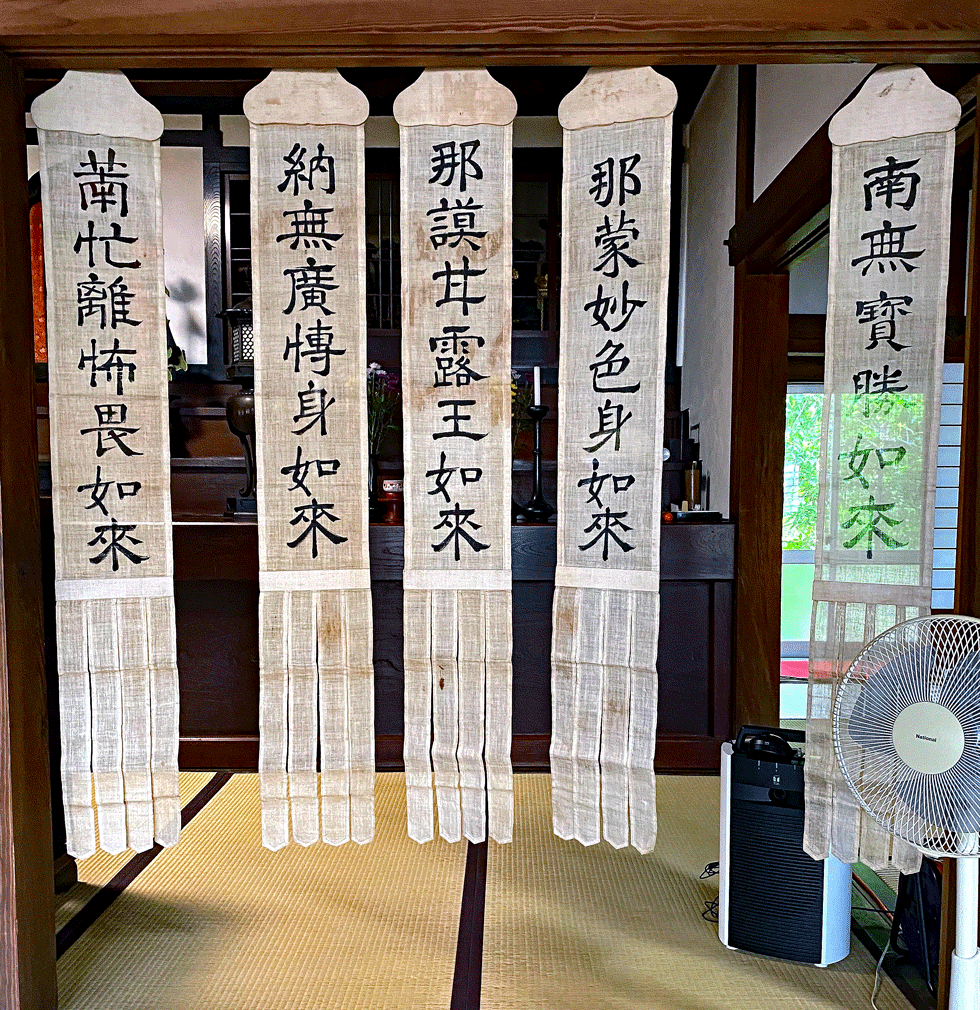 南無寶勝如來
那蒙妙色身如來
那謨甘露王如來
納無廣愽身如來
萳忙離怖畏如來
National